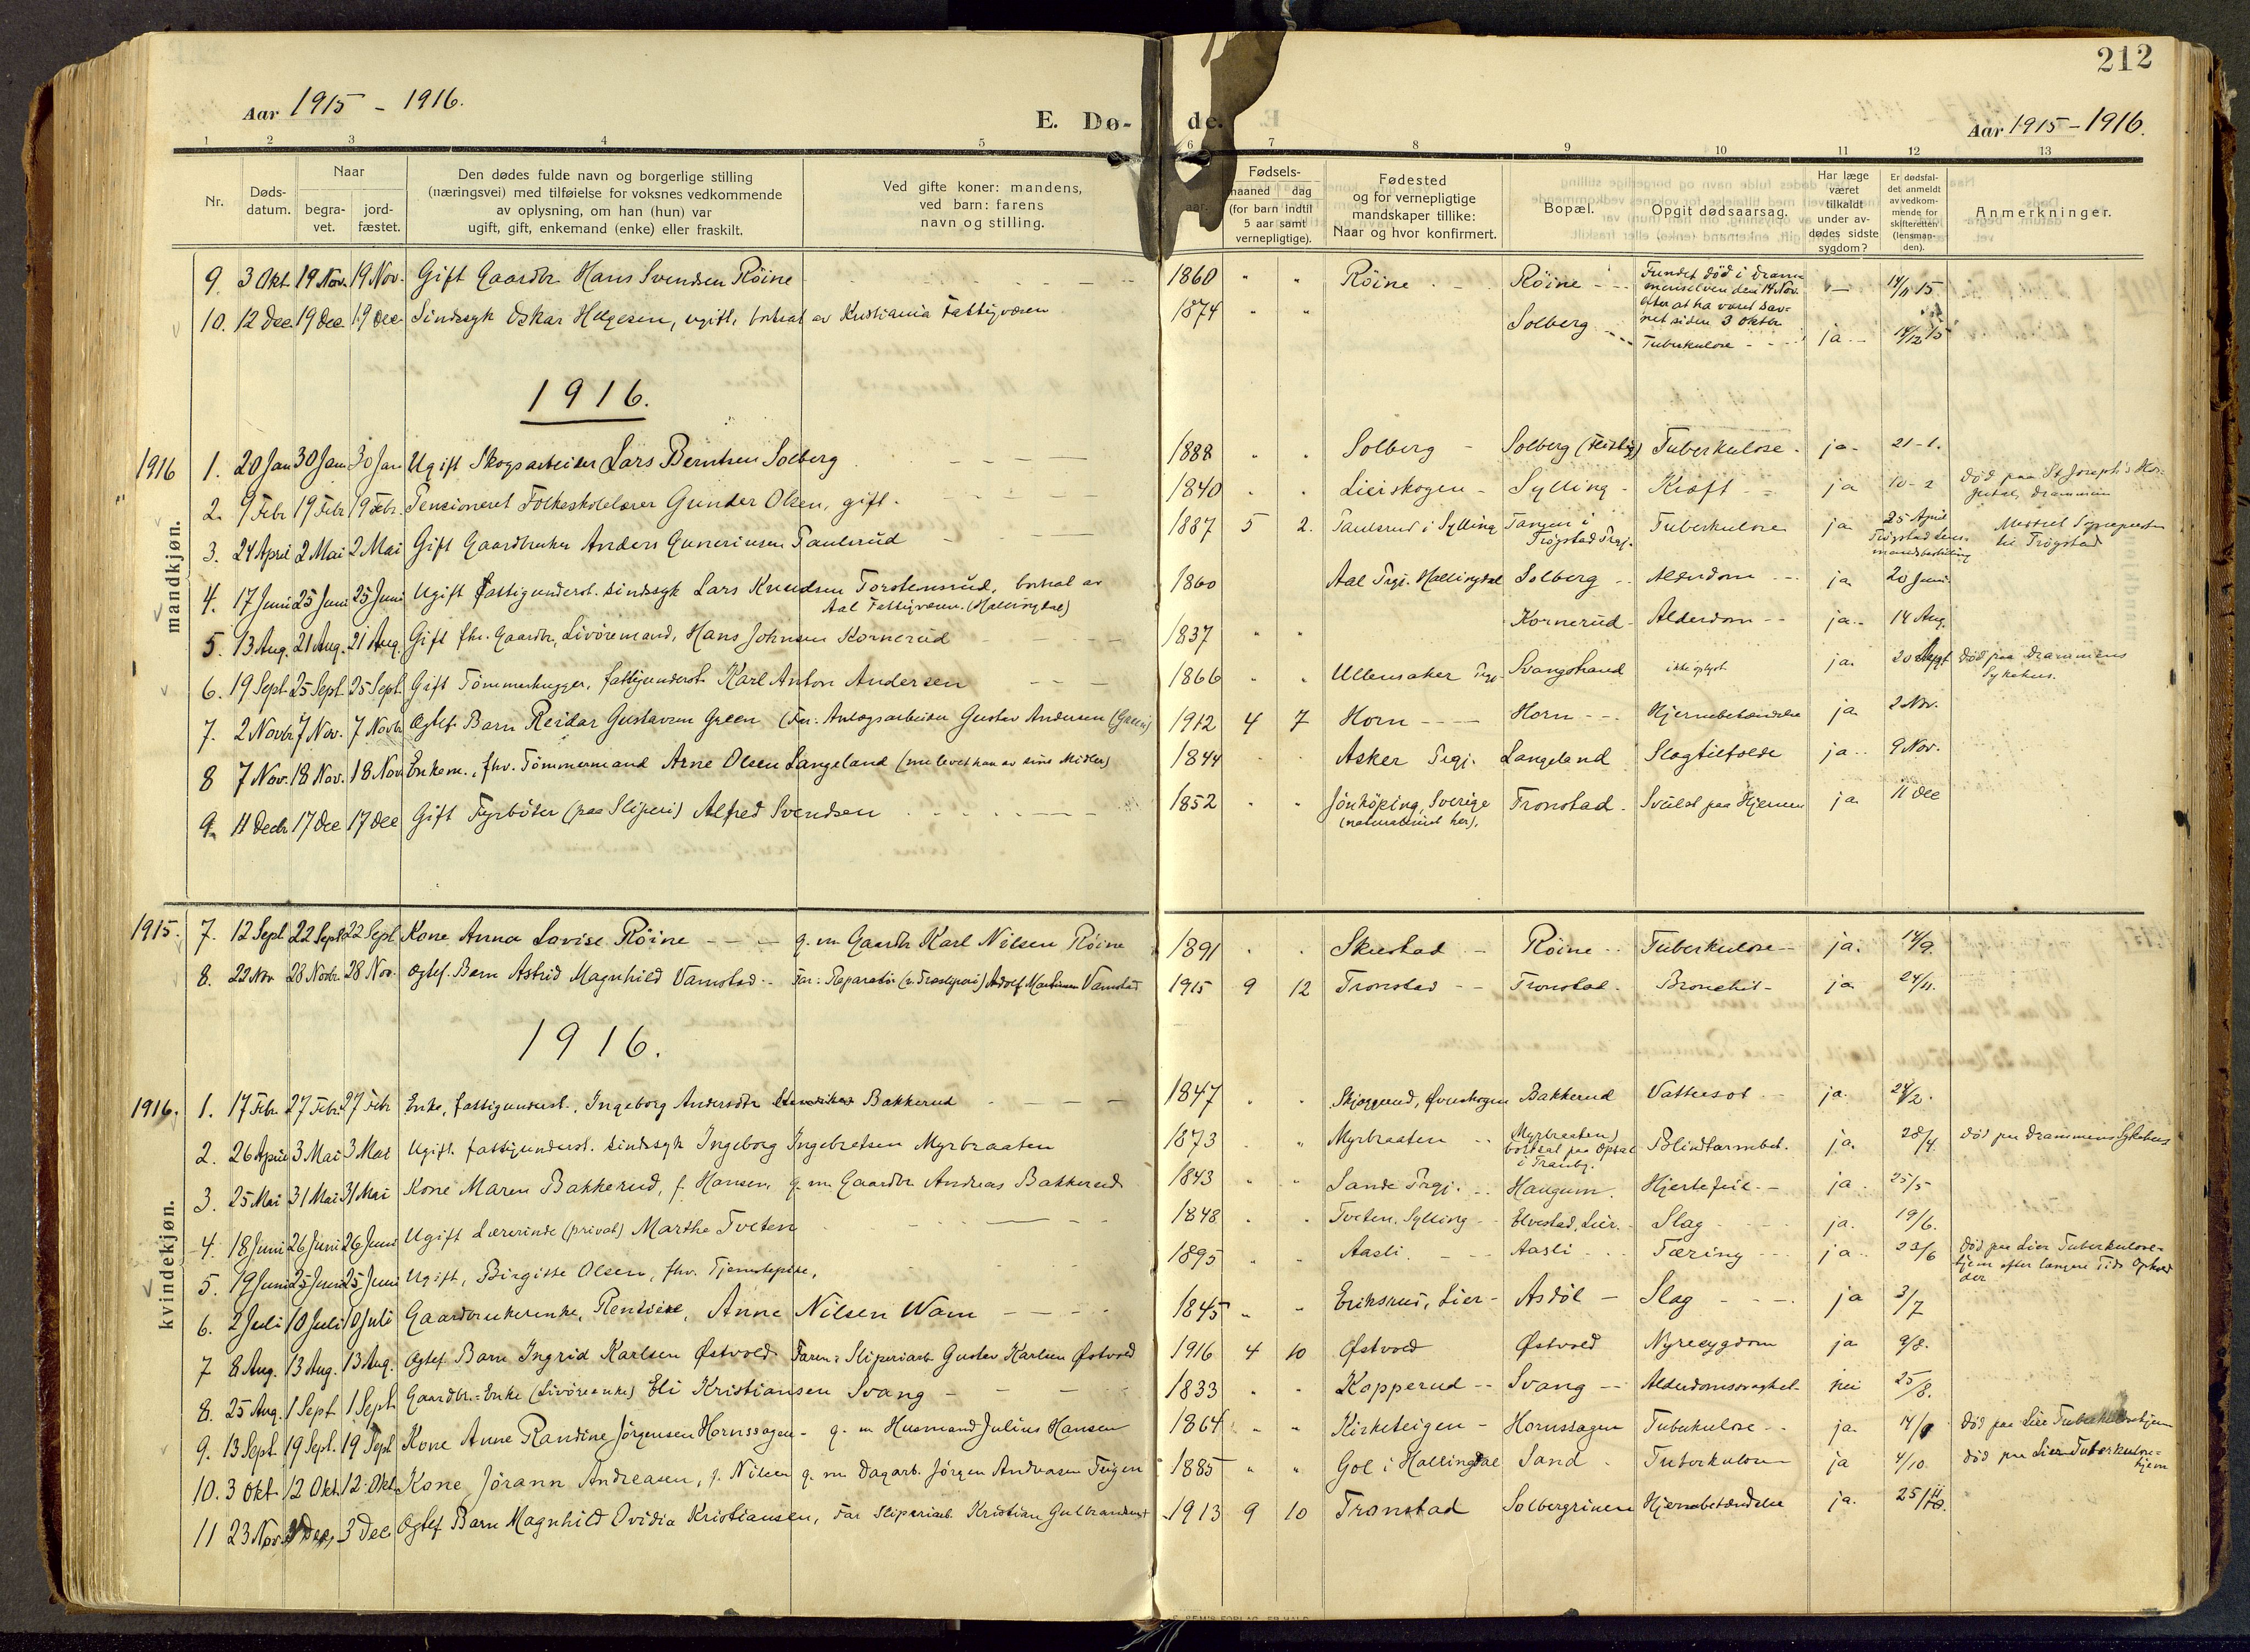 212
Aar 1915 - 1916.
E. Dø-
de.
Aar 1915 - 1916.
1 2 3 4 5 6 7 8 9 10 11 12 13
Nr.
Døds-
datum.
Naar
begra-
vet.
jord-
fæstet.
Den dødes fulde navn og borgerlige stilling
(næringsvei) med tilføielse for voksnes vedkommende
av oplysning, om han (hun) var
ugift, gift, enkemand (enke) eller fraskilt.
Ved gifte koner: mandens,
ved barn: farens
navn og stilling.
aar.
Fødsels-
maaned dag
(for barn indtil
5 aar samt
vernepligtige).
Fødested
og for vernepligtige
mandskaper tillike:
Naar og hvor konfirmert.
Bopæl.
Opgit dødsaarsag.
Har læge
været
tilkaldt
under av-
dødes sidste
sygdom?
Er dødsfal-
det anmeldt
av vedkom-
mende for
skifteretten
(lensman-
den).
Anmerkninger.
9. 3 Okt. 19 Nov. 19 Nov. Gift Gaardbr. Hans Svendsen Röine 1860 " " Röine Röine Fundet död i Dram-
menselven den 14 Nov.
efter at ha været sav-
net siden 3 Oktbr. — 14/11 15
10. 12 Dec. 19 Dec. 19 Dec. Sindssyk Oskar Helgesen, ugift, bortsat av Kristiania Fattigvæsen 1874 " " Solberg Tuberkulose ja 14/12 15
1916.
mandkjøn.
1916 1. 20 Jan 30 Jan 30 Jan Ugift Skogsarbeider Lars Berntsen Solberg 1888 " " Solberg Solberg Tuberkulose ja 21-1.
" 2. 9 Febr 19 Febr 19 Febr. Pensioneret Folkeskolelærer Gunder Olsen, gift. 1840 " " Lierskogen Sylling Kræft ja 10-2 Död paa St Joseph's Hos-
pital, Drammen
3. 24 April 2 Mai 2 Mai Gift Gaardbruker Anders Guneriusen Paulsrud 1887 5 2. Paulsrud i Sylling Tangen i
Trøgstad Prgj. Tuberkulose ja 25 April
Trøgstad Lens-
mandsbestilling til Trøgstad
4. 17 Juni 25 Juni 25 Juni Ugift fattigunderst. sindssyk Lars Knudsen Torstensrud, bortsat av
Aal Fattigvæsen. (Hallingdal) 1860 Aal Prgj. Hallingdal Solberg Alderdom ja 20 Juni
5. 13 Aug. 21 Aug. 21 Aug. Gift fhv. Gaardbr., Livöremand, Hans Johnsen Kornerud 1837 " " Kornerud Alderdom ja 14 Aug.
6. 19 Sept 25 Sept. 25 Sept. Gift Tömmerhugger, fattigunderst. Karl Anton Andersen 1866 " Ullensaker Prgj. Svangstrand ikke oplyst ja 20 Sept Död paa Drammens
Sykehus.
7. 2 Novbr 7 Nov. 7 Novbr Ægtef. Barn Reidar Gustavsen Green (Far: Anlægsarbeider Gustav Andersen (Green) 1912 4 7 Horn Horn Hjernebetændelse ja 2 Nov.
8 7 Nov. 18 Nov. 18 Nov. Enkem., fhv. Tömmermand Arne Olsen Langeland (nu levet han av sine Midler) 1844 Asker Prgj. Langeland Slagtilfælde ja 9 Nov.
9. 11 Decbr 17 Dec 17 Dec Gift Fyrböter (paa Sliperi) Alfred Svendsen 1852 " " Jönköping, Sverige
(naturaliseret her). Tronstad Svulst paa Hjernen ja 11 Dec
kvindekjøn.
1915. 7. 12 Sept 22 Sept 22 Sept Kone Anna Lovise Röine g. m. Gaardbr Karl Nilsen Röine 1891 " " Skustad Röine Tuberkulose ja. 14/9.
8. 22 Nov 28 Novbr. 28 Nov. Ægtef. Barn Astrid Magnhild Vamstad Far: Reparatör (v. Træsliperi) Adolf Martinsen Vamstad 1915 9 12 Tronstad Tronstad Bronchit ja 24/11.
1916.
1916. 1. 17 Febr. 27 Febr. 27 Febr Enke, fattigunderst., Ingeborg Andersdtr Bakkerud 1847 " " Skjæggerud, Øvreskogen Bakkerud Vattersot ja. 24/2.
2. 26 April 3 Mai 3 Mai Ugift. fattigunderst. sindssyk Ingeborg Ingebretsen Myrbraaten 1873 " Myrbraaten (Myrbraaten)
bortsat paa Opsal
i Tranby. Blindtarmbet. ja. 28/4. Död paa Drammens Sykehus
3. 25 Mai 31 Mai 31 Mai Kone Maren Bakkerud, f. Hansen, g. m. Gaardbr Andreas Bakkerud 1843 " " Sande Prgj. Haugum. Hjertefeil ja. 25/5
4. 18 Juni 26 Juni 26 Juni Ugift Lærerinde (privat) Marthe Tveten 1848 Tveten, Sylling Elvestad, Lier. Slag ja. 19/6.
5. 19 Juni 25 Juni 25 Juni Ugift, Birgitte Olsen, fhv. Tjenestepike, 1895 " Aasli Aasli Tæring ja 23/6 Död paa Lier Tuberkulose-
hjem efter længere Tids Ophold
der
6. 2 Juli 10 Juli 10 Juli Gaardbrukerenke, Anne Nilsen Wam 1845 " " Eriksrud, Lier Asdöl Slag ja 3/7
7 8 Aug. 13 Aug. 13 Aug. Ægtef. Barn Ingrid Karlsen Østvold Faren: Sliperiarb. Gustav Karlsen Østvold 1916 4 10 Østvold Østvold Nyresygdom ja 9/8.
8. 25 Aug. 1 Sept 1 Sept Gaardbr.-Enke (Livöreenke) Eli Kristiansen Svang 1833 " " Kopperud Svang Alderdomssvaghet nei 25/8.
9. 13 Sept. 19 Sept. 19 Sept Kone Anne Randine Jörgensen Hornssagen g. m Husmand Julius Hansen 1864 " " Kirketeigen Hornssagen Tuberkulose ja. 14/9 Död paa Lier Tuberkulosehjem
10. 3 Okt 12 Okt. 12 Okt. Kone Jörann Andreasen, f. Nilsen g. m. Dagarb. Jörgen Andreasen Teigen 1885 " " Gol i Hallingdal Sand Tuberkulose ja 4/10. Död paa Lier Tuberkulose-
hjem
11 23 Nov. 3 Dec. 3 Dec Ægtef Barn Magnhild Ovidia Kristiansen, Far Sliperiarb. Kristian Gulbrandsen 1913 9 10 Tronstad Solbergrinen Hjernebetændelse ja. 25/11